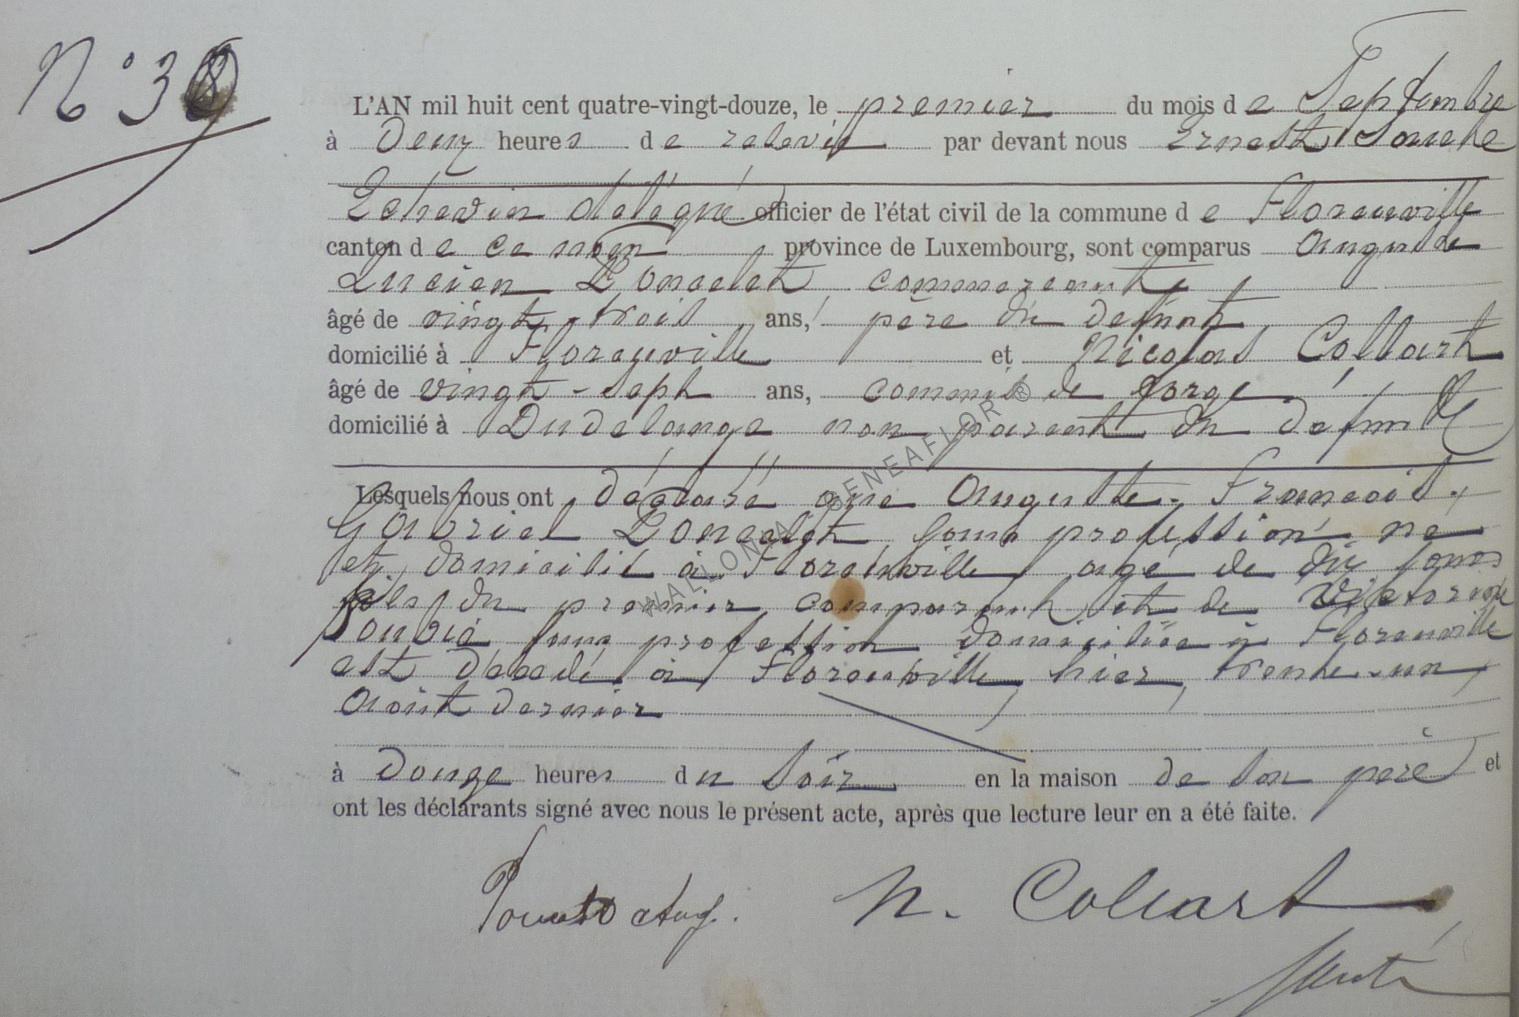 N° 38
L'AN mil huit cent quatre-vingt-douze, le premier du mois de Septembre
à deux heures de relevée par devant nous Ernest
Echevin délégué officier de l'état civil de la commune de Florenville
canton de ce nom province de Luxembourg, sont comparus Auguste
Lucien Poncelet commerçant,
âgé de vingt-trois ans, père du défunt,
domicilié à Florenville et Nicolas Collart
âgé de vingt-sept ans, commis de forge,
domicilié à Dudelange non parent du défunt
Lesquels nous ont déclaré que Auguste-François-
Gabriel Poncelet, sans profession, né
et domicilié à Florenville, agé de dix jours
fils du premier comparant et de Victorine
sans profession domiciliée à Florenville
est décédé à Florenville, hier, trente-un
Août dernier
à douze heures du soir en la maison de son père et
ont les déclarants signé avec nous le présent acte, après que lecture leur en a été faite.
N. Collart
WALLONIA GENEAFLOR ©